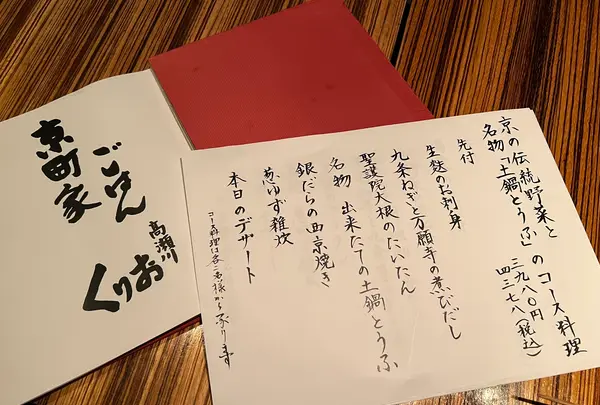 京町家
ごはん
高瀬川
くりお
京の伝統野菜と
名物「土鍋とうふ」のコース料理
三九八〇円
四三七八(税込)
先付
生麩のお刺身
九条ねぎと万願寺の煮びだし
聖護院大根のたいたん
名物 出来たての土鍋とうふ
銀だらの西京焼き
葱ゆず雑炊
本日のデザート
コース料理は二名様から承ります